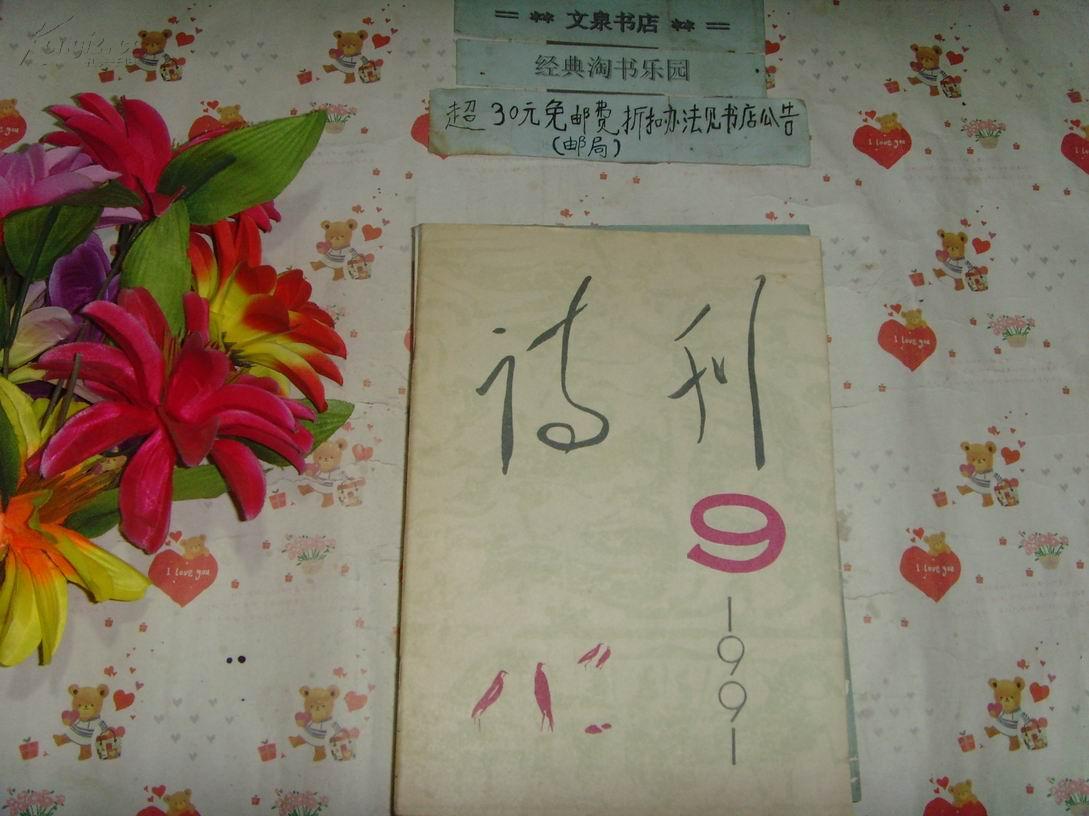 == ** 文泉书店 ** ==
经典淘书乐园
超30元免邮费折扣办法见书店公告
(邮局)
诗刊
9
1991
I love you
I love you
I love you
I love you
I love you